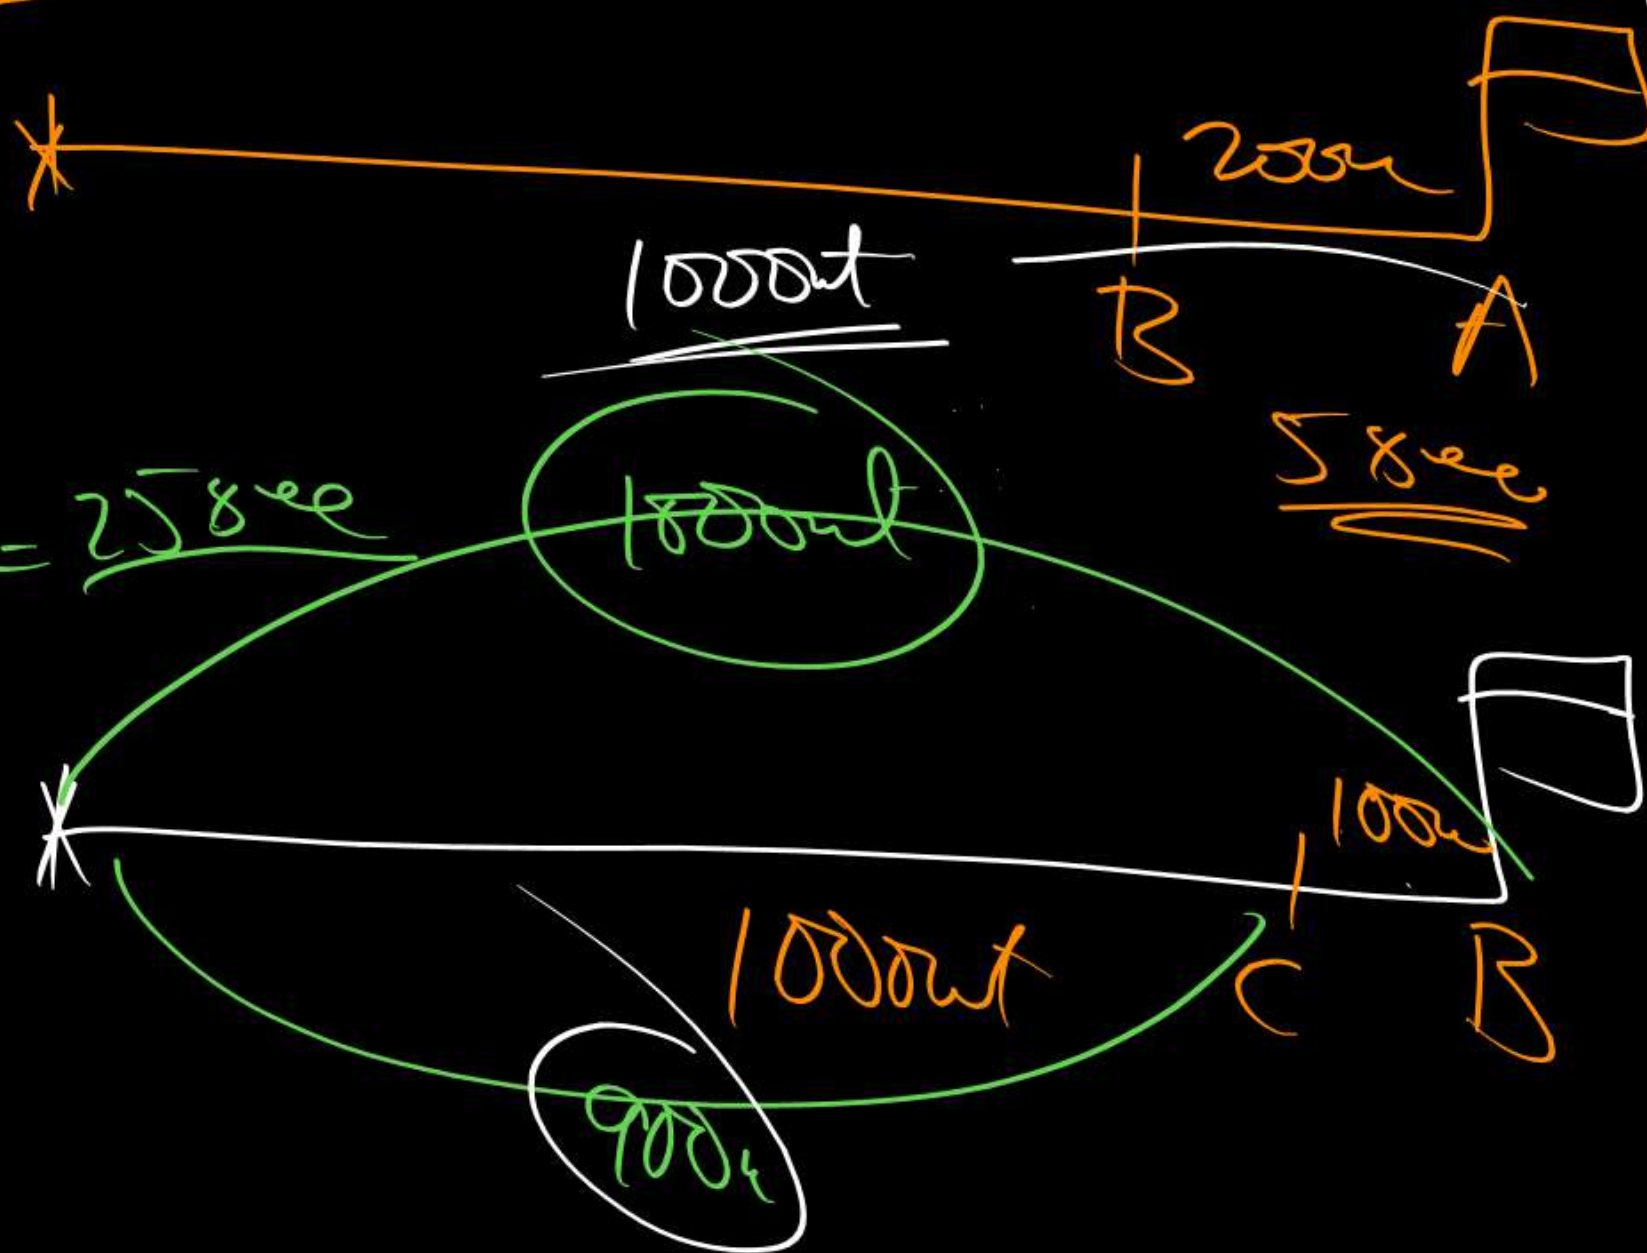 200m
1000mt
B A
5 sec
= 25 sec
1000mt
100m
1000mt
C B
900m